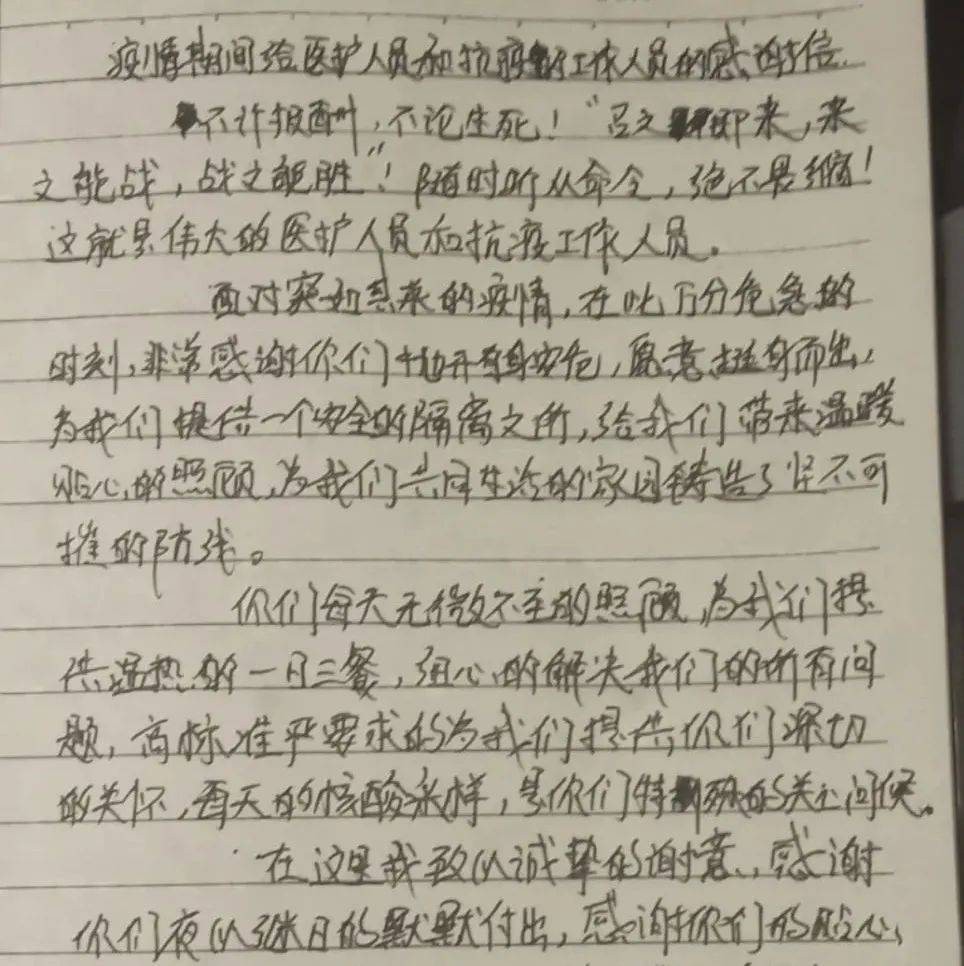 疫情期间给医护人员和抗疫工作人员的感谢信
不计报酬，不论生死！“召之即来，来
之能战，战之能胜”！随时听从命令，绝不畏缩！
这就是伟大的医护人员和抗疫工作人员。
面对突如其来的疫情，在此万分危急的
时刻，非常感谢你们抛开自身安危，愿意挺身而出，
为我们提供一个安全的隔离之所，给我们带来温暖
贴心的照顾，为我们共同生活的家园铸造了坚不可
摧的防线。
你们每天无微不至的照顾，为我们提
供温热的一日三餐，细心的解决我们的所有问
题，高标准严要求的为我们提供你们深切
的关怀，每天的核酸采样，是你们特殊的关心问候。
在这里我致以诚挚的谢意，感谢
你们夜以继日的默默付出，感谢你们的贴心、